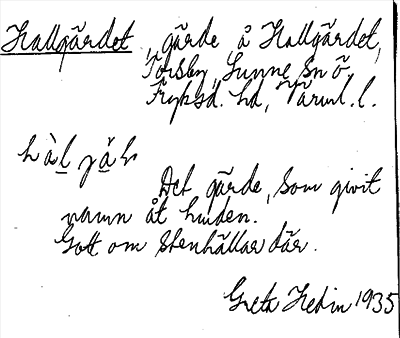 Hallgärdet, gärde å Hallgärdet,
Torsby, Sunne sn ö,
Fryksd. hd, Värml. l.
hàl gä̀h
Det gärde, som givit
namn åt hmden.
Gott om stenhällar där.
Greta Hedin 1935